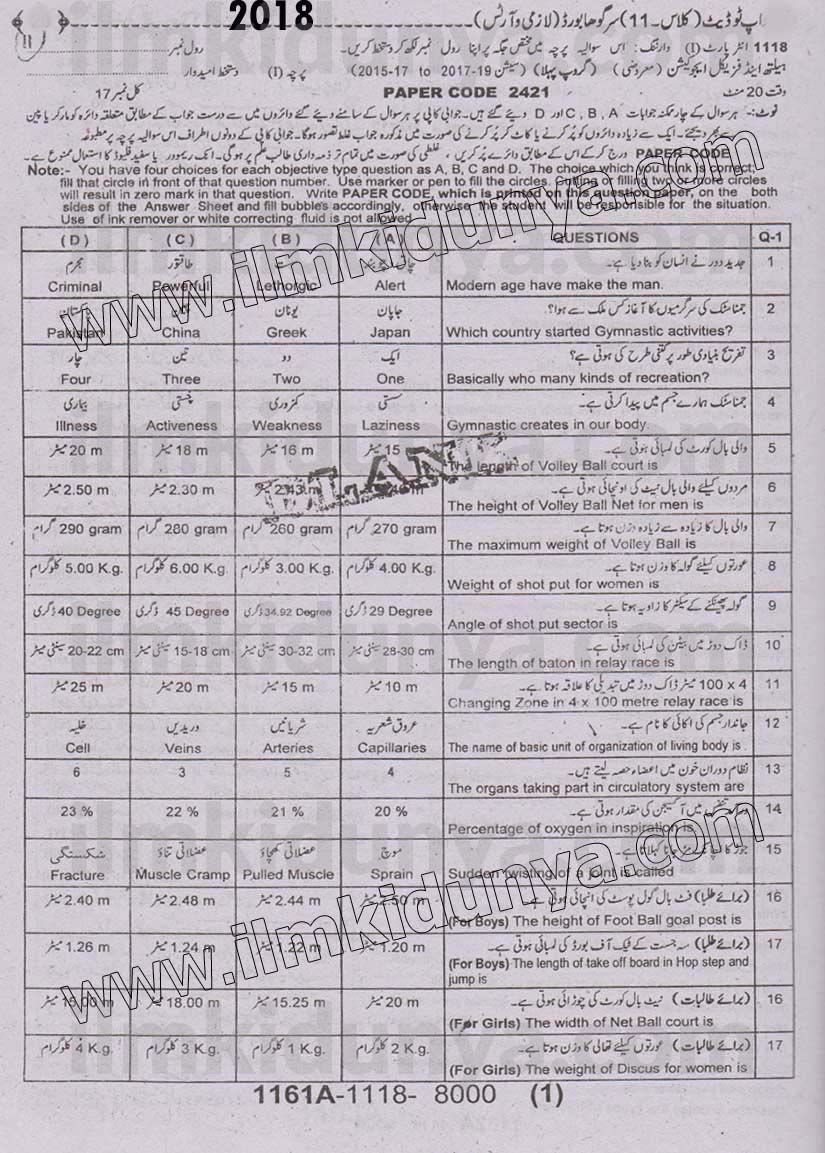 2018 اپ ٹو ڈیٹ (کلاس ۔ 11) سرگودھا بورڈ (لازمی و آرٹس)
1118 انٹر پارٹ (I) وارننگ: اس سوالیہ پرچہ میں مختص جگہ پر اپنا رول نمبر لکھ کر دستخط کریں۔ رول نمبر
ہیلتھ اینڈ فزیکل ایجوکیشن (معروضی) (گروپ پہلا) (سیشن 19-2017 to 17-2015) پرچہ (I) دستخط امیدوار
وقت 20 منٹ PAPER CODE 2421 کل نمبر 17
نوٹ:۔ ہر سوال کے چار ممکنہ جوابات C, B, A اور D دیئے گئے ہیں۔ جوابی کاپی پر ہر سوال کے سامنے دیئے گئے دائروں میں سے درست جواب کے مطابق متعلقہ دائرہ کو مارکر یا پین
سے بھر دیجئے۔ ایک سے زیادہ دائروں کو پُر کرنے یا کاٹ کر پُر کرنے کی صورت میں مذکورہ جواب غلط تصور ہوگا۔ جوابی کاپی کے دونوں اطراف اس سوالیہ پرچہ پر مطبوعہ
PAPER CODE درج کر کے اس کے مطابق دائرے پُر کریں، غلطی کی صورت میں تمام تر ذمہ داری طالب علم پر ہوگی۔ انک ریموور یا سفید فلیوڈ کا استعمال ممنوع ہے۔
Note:- You have four choices for each objective type question as A, B, C and D. The choice which you think is correct,
fill that circle in front of that question number. Use marker or pen to fill the circles. Cutting or filling two or more circles
will result in zero mark in that question. Write PAPER CODE, which is printed on this question paper, on the both
sides of the Answer Sheet and fill bubbles accordingly, otherwise the student will be responsible for the situation.
Use of ink remover or white correcting fluid is not allowed
( D ) ( C ) ( B ) ( A ) QUESTIONS Q-1
مجرم طاقتور چاق چوبند جدید دور نے انسان کو بنا دیا ہے۔ 1
Criminal Powerful Lethorgic Alert Modern age have make the man.
پاکستان یونان جاپان جمناسٹک کی سرگرمیوں کا آغاز کس ملک سے ہوا؟ 2
Pakistan China Greek Japan Which country started Gymnastic activities?
چار تین دو ایک تفریح بنیادی طور پر کتنی طرح کی ہوتی ہے؟ 3
Four Three Two One Basically who many kinds of recreation?
بیماری چستی کمزوری سستی جمناسٹک ہمارے جسم میں پیدا کرتی ہے۔ 4
Illness Activeness Weakness Laziness Gymnastic creates in our body.
20 m میٹر 18 m میٹر 16 m میٹر 15 میٹر والی بال کورٹ کی لمبائی ہوتی ہے۔ 5
The length of Volley Ball court is
2.50 m میٹر 2.30 m میٹر 2.43 m میٹر مردوں کیلئے والی بال نیٹ کی اونچائی ہوتی ہے۔ 6
The height of Volley Ball Net for men is
290 gram گرام 280 gram گرام 260 gram گرام 270 gram گرام والی بال کا زیادہ سے زیادہ وزن ہوتا ہے۔ 7
The maximum weight of Volley Ball is
5.00 K.g. کلوگرام 6.00 K.g. کلوگرام 3.00 K.g. کلوگرام 4.00 K.g. کلوگرام عورتوں کیلئے گولہ کا وزن ہوتا ہے۔ 8
Weight of shot put for women is
40 Degree ڈگری 45 Degree ڈگری 34.92 Degree ڈگری 29 Degree ڈگری گولہ پھینکنے کے سیکٹر کا زاویہ ہوتا ہے۔ 9
Angle of shot put sector is
20-22 cm سینٹی میٹر 15-18 cm سینٹی میٹر 30-32 cm سینٹی میٹر 28-30 cm سینٹی میٹر ڈاک دوڑ میں بیٹن کی لمبائی ہوتی ہے۔ 10
The length of baton in relay race is
25 m میٹر 20 m میٹر 15 m میٹر 10 m میٹر 4 x 100 میٹر ڈاک دوڑ میں تبدیلی کا علاقہ ہوتا ہے۔ 11
Changing Zone in 4 x 100 metre relay race is
خلیہ وریدیں شریانیں عروق شعریہ جاندار جسم کی اکائی کا نام ہے۔ 12
Cell Veins Arteries Capillaries The name of basic unit of organization of living body is
6 3 5 4 نظام دوران خون میں اعضاء حصہ لیتے ہیں۔ 13
The organs taking part in circulatory system are
23 % 22 % 21 % 20 % میں آکسیجن کی مقدار ہوتی ہے۔ 14
Percentage of oxygen in inspiration is
شکستگی عضلاتی تناؤ عضلاتی کھچاؤ موچ جوڑ کا کہلاتا ہے۔ 15
Fracture Muscle Cramp Pulled Muscle Sprain Sudden twisting of a joint is called
2.40 m میٹر 2.48 m میٹر 2.44 m میٹر 2.50 m میٹر (برائے طلبا) فٹ بال گول پوسٹ کی اونچائی ہوتی ہے۔ 16
(For Boys) The height of Foot Ball goal post is
1.26 m میٹر 1.24 m میٹر 1.22 m میٹر 1.20 m میٹر (برائے طلبا) سہ جست کے ٹیک آف بورڈ کی لمبائی ہوتی ہے۔ 17
(For Boys) The length of take off board in Hop step and
jump is
15.00 m میٹر 18.00 m میٹر 15.25 m میٹر 20 m میٹر (برائے طالبات) نیٹ بال کورٹ کی چوڑائی ہوتی ہے۔ 16
(For Girls) The width of Net Ball court is
4 K.g. کلوگرام 3 K.g. کلوگرام 1 K.g. کلوگرام 2 K.g. کلوگرام (برائے طالبات) عورتوں کیلئے تھالی کا وزن ہوتا ہے۔ 17
(For Girls) The weight of Discus for women is
1161A-1118- 8000 (1)
www.ilmkidunya.com
www.ilmkidunya.com